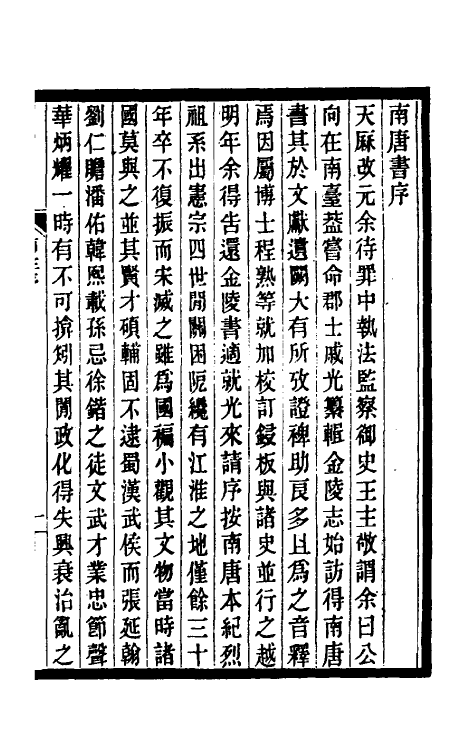 南唐書序
天厤改元余待罪中執法監察御史王主敬謂余曰公
向在南臺葢嘗命郡士戚光纂輯金陵志始訪得南唐
書其於文獻遺闕大有所攷證裨助良多且爲之音釋
焉因屬博士程熟等就加校訂鋟板與諸史並行之越
明年余得告還金陵書適就光來請序按南唐本紀烈
祖系出憲宗四世間關困阨纔有江淮之地僅餘三十
年卒不復振而宋滅之雖爲國褊小觀其文物當時諸
國莫與之並其賢才碩輔固不逮蜀漢武侯而張延翰
劉仁贍潘佑韓熙載孫忌徐鍇之徒文武才業忠節聲
華炳耀一時有不可揜矧其閒政化得失興衰治亂之